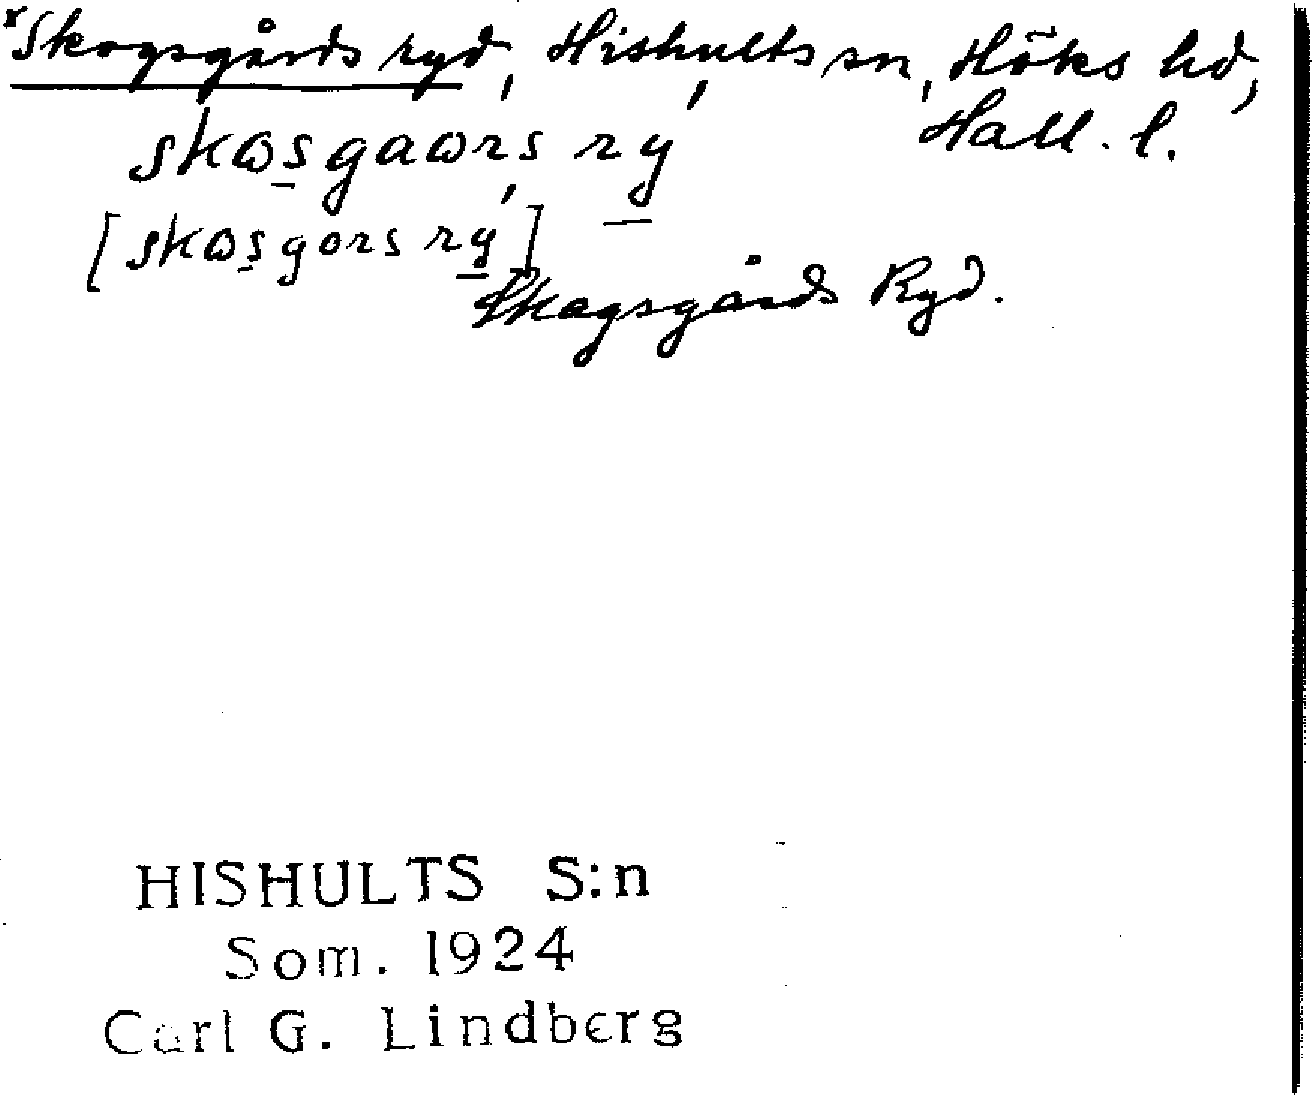 *Skogsgårds ryd, Hishults sn, Höks hd,
Hall. l.
skɷsgaɷrs ry
[skɷsgors ry]
Skogsgårds Ryd.
HISHULTS S:n
Som. 1924
Carl G. Lindberg